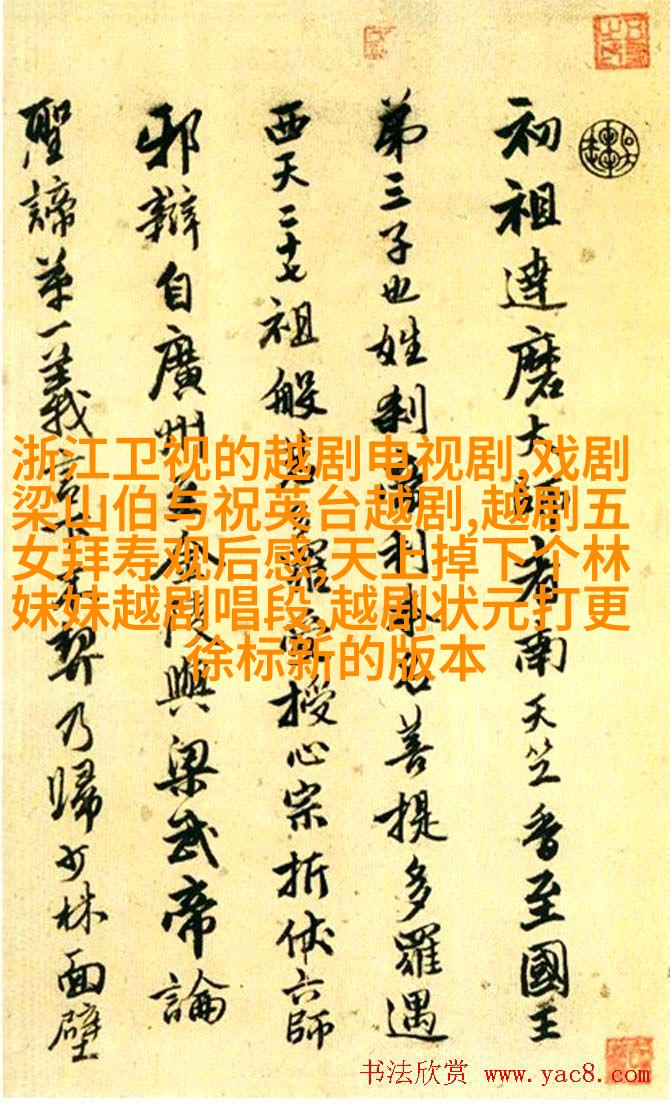 初祖達磨大師者南天竺香至國王
第三子也姓刹帝利本名菩提多羅遇
西天二十七祖般若多羅密授心宗折伏六師
邪辯自廣州至金陵與梁武帝論
聖諦第一義言不契乃歸少林面壁
浙江卫视的越剧电视剧,戏剧
梁山伯与祝英台越剧,越剧五
女拜寿观后感,天上掉下个林
妹妹越剧唱段,越剧状元打更
徐标新的版本
书法欣赏 www.yac8.com